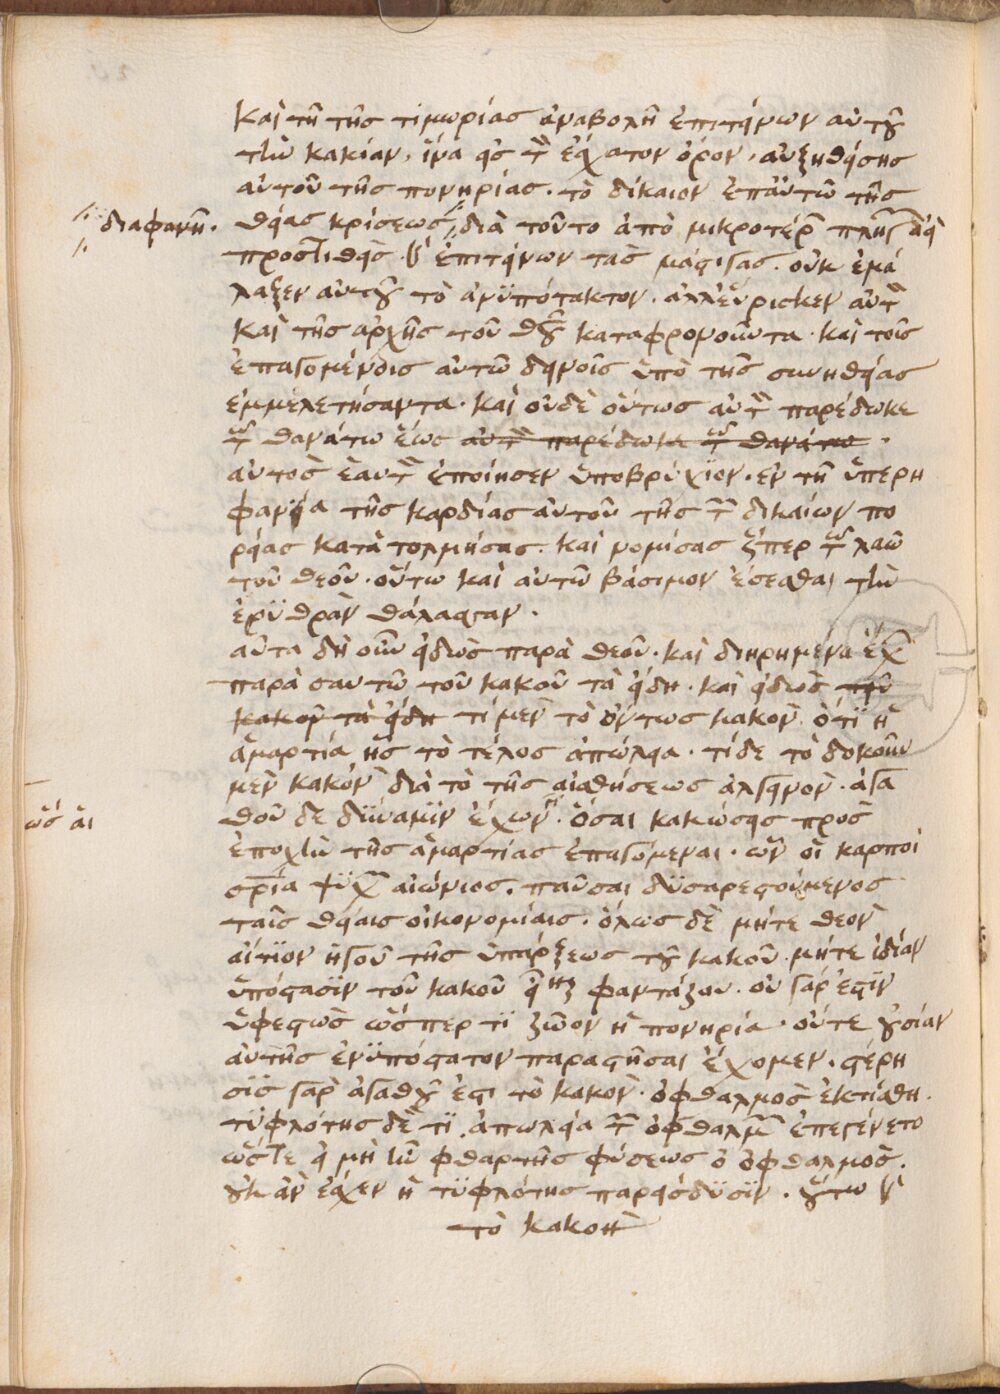 καὶ τῆ τῆς τιμωρίας ἀναβολῆ ἐπιτείνων αὐτοῦ
τὴν κακίαν, ἵνα εἰς τὸν ἔσχατον ὅρον, αὐξηθείσης
αὐτοῦ τῆς πονηρίας. τὸ δίκαιον ἐπαὐτῶ τῆς
διαφανῆ.
θείας κρίσεως διὰ τοῦτο ἀπὸ μικροτέρων πληγῶν ἀεὶ
προστιθεὶς καὶ ἐπιτείνων τὰς μάστιγας. οὐκ ἐμά
λαξεν αὐτοῦ τὸ ἀνϋπότακτον. ἀλλεὕρισκεν αὐτὸν
καὶ τῆς ἀρχῆς τοῦ θεοῦ καταφρονοῦντα. καὶ τοῖς
ἐπαγομένοις αὐτῶ δεινοῖς ὑπὸ τῆς συνηθείας
ἐμμελετήσαντα. καὶ οὐδὲ οὕτως αὐτὸν παρέδωκε
τῶ θανάτω ἕως αὐτὸν παρέδωκε τῶ θανάτω.
αὐτὸς ἑαυτὸν ἐποίησεν ὑποβρύχιον. ἐν τῆ ὑπερη
φανεία τῆς καρδίας αὐτοῦ τῆς τῶν δικαίων πο
ρείας κατὰ τολμήσας. καὶ νομίσας ὥσπερ τῶ λαῶ
τοῦ θεοῦ. οὕτω καὶ αὐτῶ βάσιμον ἔσεσθαι τὴν
ἐρϋθρὰν θάλασσαν.
αῦτα δὴ οὖν εἰδὼς παρὰ θεοῦ. καὶ διηρημένα ἔχων
παρὰ σαυτῶ τοῦ κακοῦ τὰ εἴδη. καὶ εἰδὼς τοῦ
κακοῦ τὰ εἴδη τί μὲν τὸ ὄντως κακὸν ὅτϊ ἡ
ἁμαρτία ἧς τὸ τέλος ἀπώλεια. τί δε τὸ δοκοῦν
μὲν κακὸν διὰ τὸ τῆς αἰσθήσεως ἀλγεινὸν. ἀγα
ὡς αἱ
θοῦ δε δύναμϊν ἔχων. ὅσαι κακώσεις πρὸς
ἐποχὴν τῆς ἁμαρτίας ἐπαγόμεναι. ὧν οἱ καρποὶ
σωτηρία ψϋχῶν αἰώνιος. παῦσαι δϋσαρεστούμενος
ταῖς θείαις οἰκονομίαις. ὅλως δὲ μήτε θεὸν
αἴτϊον ἡγοῦ τῆς ὑπάρξεως τοῦ κακοῦ. μήτε ἰδίαν
ὑπόστασϊν τοῦ κακοῦ εἶναι φαντάζου. οὐ γὰρ ἐστϊν
ὑφεστὼς ὥσπερ τϊ ζῶον ἡ πονηρία. οὔτε οὐσίαν
αὐτῆς ἐνϋπόστατον παραστῆσαι ἔχομεν. στέρη
σϊς γὰρ ἀγαθοῦ ἐστι τὸ κακὸν. ὀφθαλμὸς ἐκτίσθη.
τϋφλότης δὲ τϊ ἀπωλεία τῶν ὀφθαλμῶν ἐπεγένετο
ὥστε εἰ μὴ ἦν φθαρτῆς φύσεως ὁ ὀφθαλμὸς.
οὐκ ἂν ἔσχεν ἡ τϋφλότης παρείσδϋσϊν. οὕτω καὶ
τὸ κακὸν